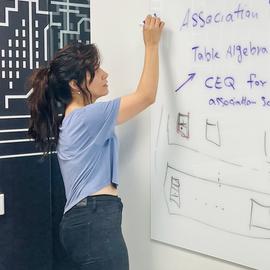 Association
Table Algebra
CEQ for
association